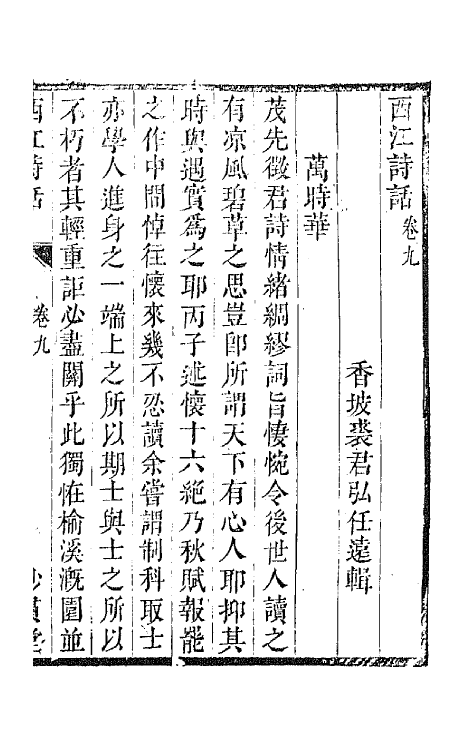 西江詩話卷九
香坡裘君弘任遠輯
萬時華
茂先徵君詩情緒綢繆詞旨悽惋令後世人讀之
有凉風碧草之思豈卽所謂天下有心人耶抑其
時與遇實爲之耶丙子述懷十六絶乃秋賦報罷
之作中間悼往懷來幾不忍讀余嘗謂制科取士
亦學人進身之一端上之所以期士與士之所以
不朽者其輕重詎必盡關乎此獨怪榆溪漑園並
西江詩話 卷九 妙貫堂